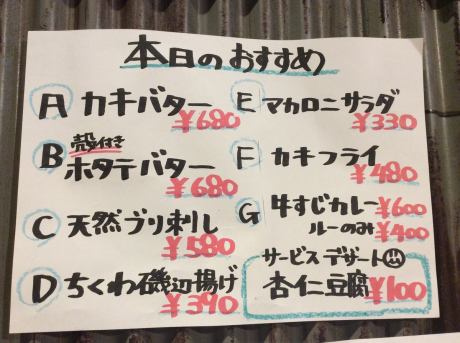 本日のおすすめ
A カキバター
¥680
B 殻付き
ホタテバター
¥680
C 天然ブリ刺し
¥580
D ちくわ磯辺揚げ
¥390
E マカロニサラダ
¥330
F カキフライ
¥480
G 牛すじカレー ¥600
ルーのみ ¥400
サービスデザート
杏仁豆腐 ¥100